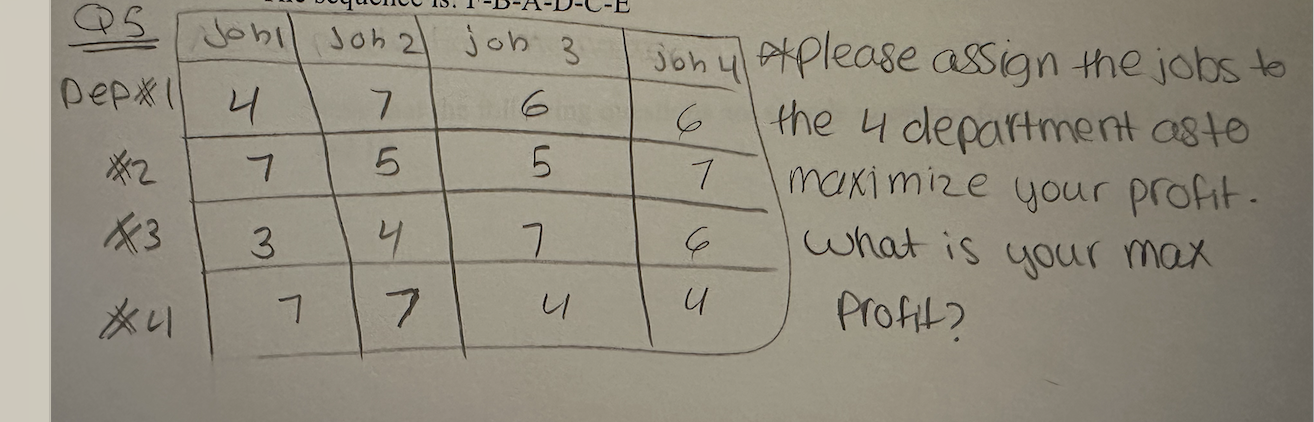 The sequence is: F-B-A-D-C-E
Q5
Job1 Job 2 job 3 job 4
Dep#1 4 7 6 6
#2 7 5 5 7
#3 3 4 7 6
#4 7 7 4 4
*Please assign the jobs to
the 4 department as to
maximize your profit.
What is your max
Profit?